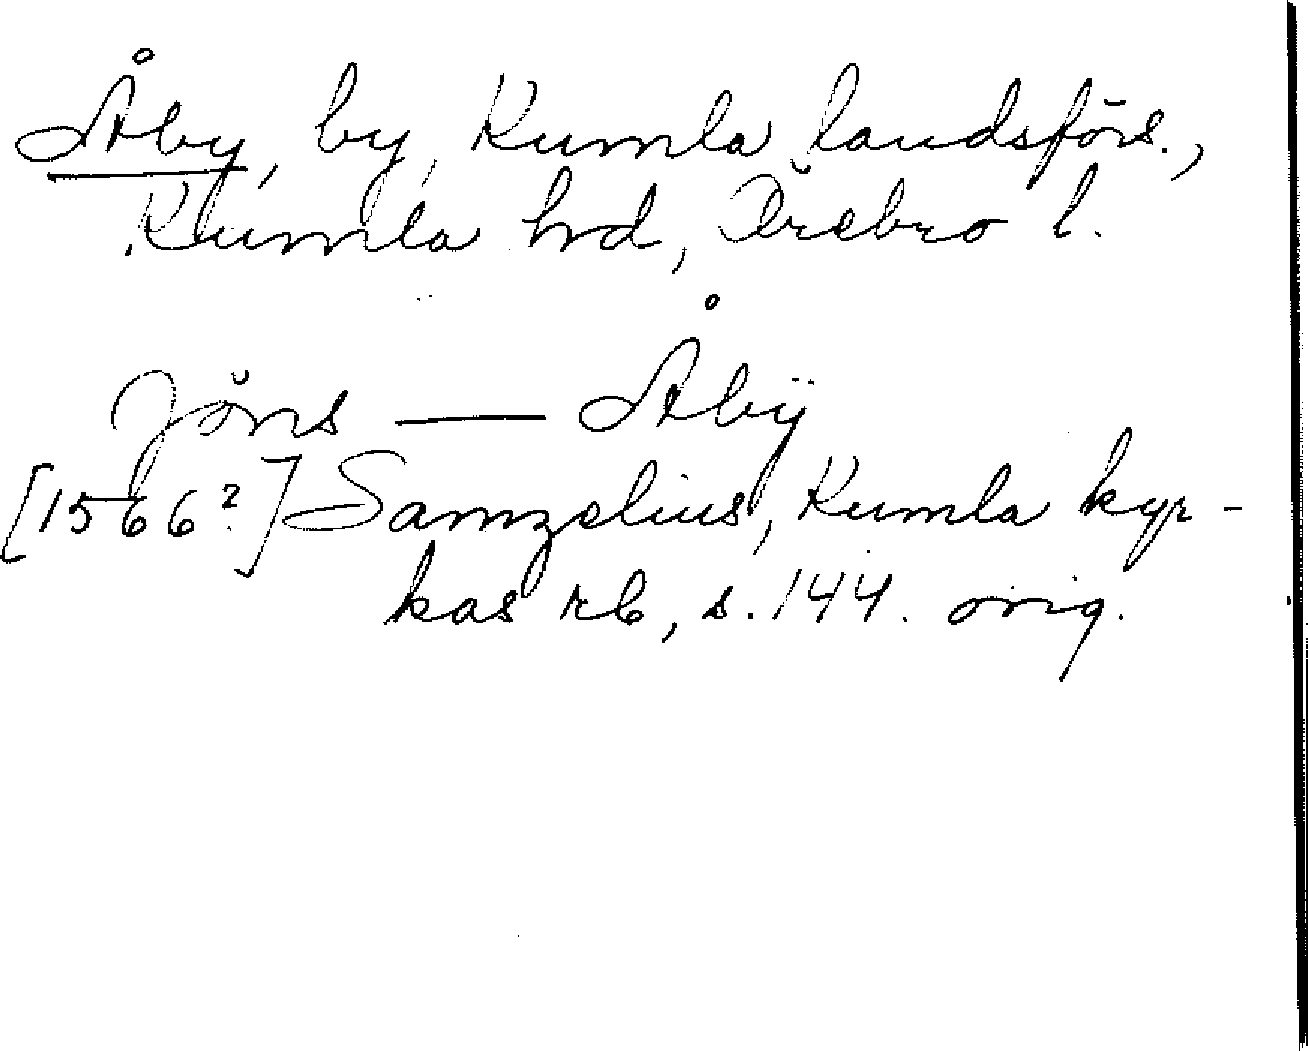 Åby, by, Kumla landsförs.,
Kumla hrd, Örebro l.
Jöns — Åbÿ
[1566?] Samzelius, Kumla kyr-
kas rb, s. 144. orig.